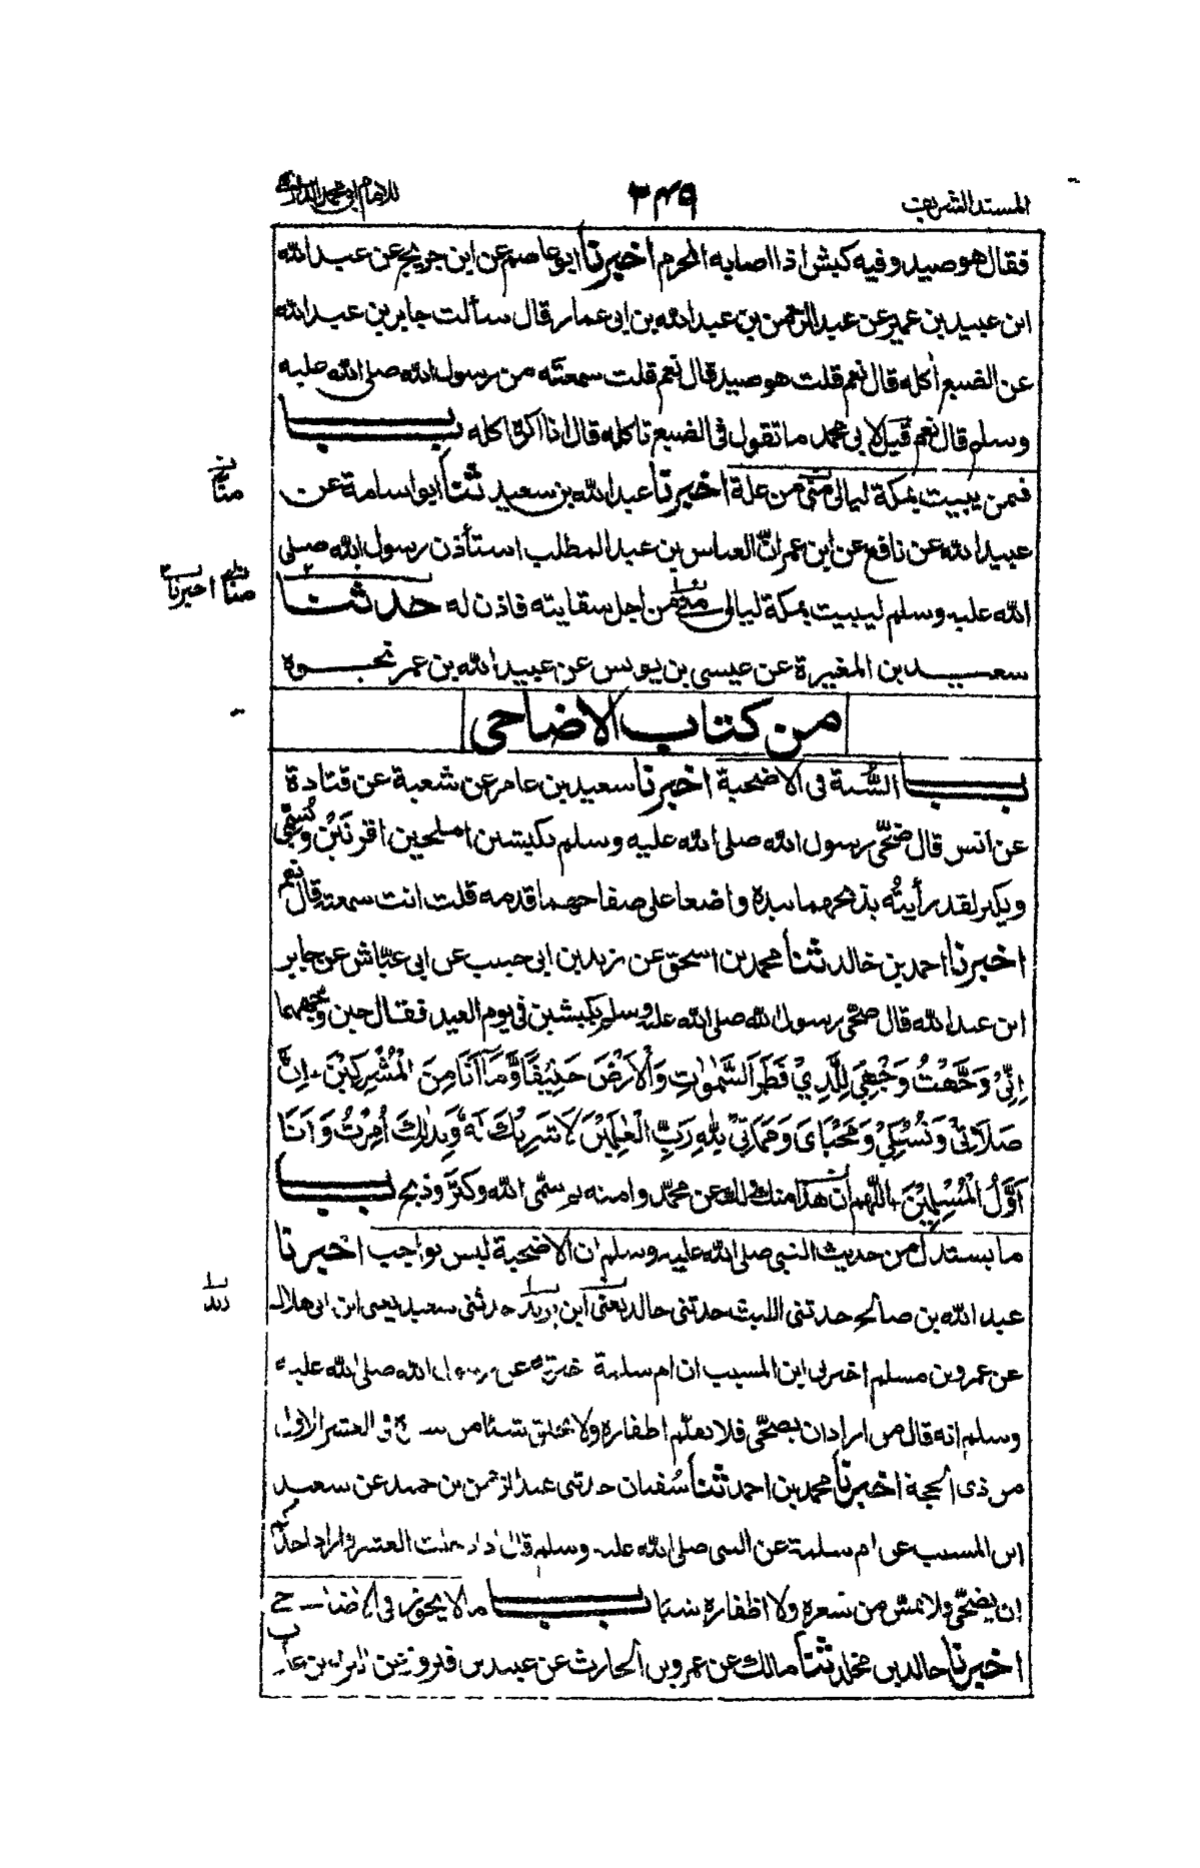 المسند الشريف
٢٤٩
للامام ابى محمد الدارمى
فقال هو صيد وفيه كبش اذا اصابه المحرم اخبرنا ابو عاصم عن ابن جريج عن عبد الله
ابن عبيد بن عمير عن عبد الرحمن بن عبد الله بن ابى عمار قال سألت جابر بن عبد الله
عن الضبع أكله قال نعم قلت هو صيد قال نعم قلت سمعته من رسول الله صلى الله عليه
وسلم قال نعم قيل لابى محمد ما تقول فى الضبع تاكله قال انا اكره اكله بــاب
فمن يبيت بمكة ليالى منى من علة اخبرنا عبد الله بن سعيد ثنا ابو اسامة عن
عبيد الله عن نافع عن ابن عمر ان العباس بن عبد المطلب استأذن رسول الله صلى
الله عليه وسلم ليبيت بمكة ليالى من اجل سقايته فاذن له حدثنا
سعيد بن المغيرة عن عيسى بن يونس عن عبيد الله بن عمر نحوه
من كتاب الاضاحى
بــاب السُّنة فى الاضحية اخبرنا سعيد بن عامر عن شعبة عن قتادة
عن انس قال ضحّى رسول الله صلى الله عليه وسلم بكبشين املحين اقرنين ويُسمّى
ويكبر لقد رأيتُه يذبحهما بيده واضعا على صفاحهما قدمه قلت انت سمعته قال نعم
اخبرنا احمد بن خالد ثنا محمد بن اسحق عن يزيد بن ابى حبيب عن ابى عيّاش عن جابر
ابن عبد الله قال ضحّى رسول الله صلى الله عليه وسلم بكبشين فى يوم العيد فقال حين وجههما
اِنِّىْ وَجَّهْتُ وَجْهِىَ لِلَّذِىْ فَطَرَ السَّمٰوٰتِ وَالْاَرْضَ حَنِيْفًا وَّمَآ اَنَا مِنَ الْمُشْرِكِيْنَ اِنَّ
صَلَاتِىْ وَنُسُكِىْ وَمَحْيَاىَ وَمَمَاتِىْ لِلّٰهِ رَبِّ الْعٰلَمِيْنَ لَا شَرِيْكَ لَهٗ وَبِذٰلِكَ اُمِرْتُ وَاَنَا
اَوَّلُ الْمُسْلِمِيْنَ اللّٰهم ان هذا منك ولك عن محمّد وامته ثم سمّى الله وكبّر وذبح بــاب
ما يستدل من حديث النبى صلى الله عليه وسلم ان الاضحية ليس بواجب اخبرنا
عبد الله بن صالح حدثنى الليث حدثنى خالد يعنى ابن يزيد حدثنى سعيد يعنى ابن ابى هلال
عن عمرو بن مسلم اخبرنى ابن المسيب ان ام سلمة اخبرته عن رسول الله صلى الله عليه
وسلم انه قال من اراد ان يضحّى فلا يقلّم اظفاره ولا يحلق شيئا من شعره فى العشر الاول
من ذى الحجة اخبرنا محمد بن احمد ثنا سُفيان حدثنى عبد الرحمن بن حميد عن سعيد
ابن المسيب عن ام سلمة عن النبى صلى الله عليه وسلم قال اذا دخلت العشر واراد احدكم
ان يضحّى فلا يمسّ من شعره ولا اظفاره شيئا بــاب ما لا يجوز فى الاضاحى
اخبرنا خالد بن مخلد ثنا مالك عن عمرو بن الحارث عن عبيد بن فيروز عن البراء بن عازب
اخبرنا
يزيد